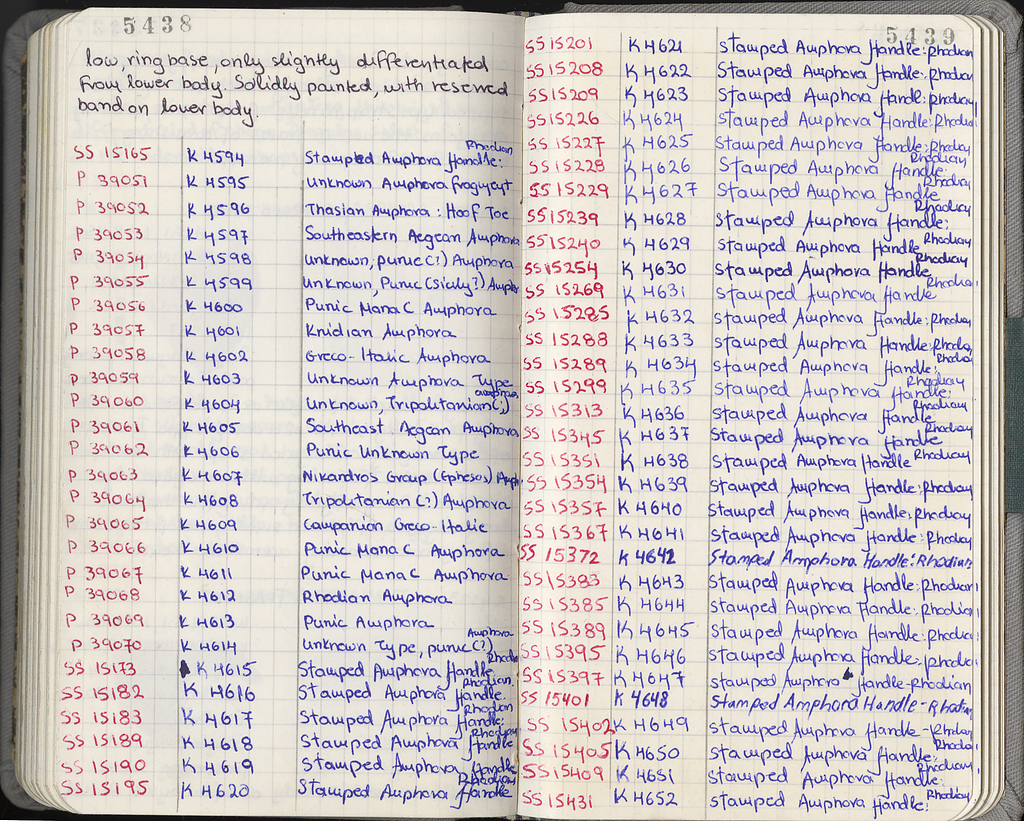 5438
low, ring base, only slightly differentiated
from lower body. Solidly painted, with reserved
band on lower body.
SS 15165 K 4594 Stamped Amphora Handle: Rhodian
P 39051 K 4595 Unknown Amphora fragment
P 39052 K 4596 Thasian Amphora: Hoof Toe
P 39053 K 4597 Southeastern Aegean Amphora
P 39054 K 4598 unknown, punic (?) Amphora
P 39055 K 4599 Unknown, Punic (Sicily?) Amphor
P 39056 K 4600 Punic Mana C Amphora
P 39057 K 4601 Knidian Amphora
P 39058 K 4602 Greco-Italic Amphora
P 39059 K 4603 Unknown Amphora Type
P 39060 K 4604 Unknown, Tripolitanian (?) amphora
P 39061 K 4605 Southeast. Aegean Amphora
P 39062 K 4606 Punic Unknown Type
P 39063 K 4607 Nikandros Group (Ephesos) Amph
P 39064 K 4608 Tripolitanian (?) Amphora
P 39065 K 4609 Campanian Greco-Italic
P 39066 K 4610 Punic Mana C Amphora
P 39067 K 4611 Punic Mana C Amphora
P 39068 K 4612 Rhodian Amphora
P 39069 K 4613 Punic Amphora
P 39070 K 4614 Unknown Type, punic (?) Amphora
SS 15173 K 4615 Stamped Amphora Handle Rhodia
SS 15182 K 4616 Stamped Amphora Handle. Rhodian
SS 15183 K 4617 Stamped Amphora Handle: Rhodian
SS 15189 K 4618 Stamped Amphora Handle Rhodian
SS 15190 K 4619 Stamped Amphora Handle
SS 15195 K 4620 Stamped Amphora Handle Rhodian
5439
SS 15201 K 4621 Stamped Amphora Handle: Rhodian
SS 15208 K 4622 Stamped Amphora Handle: Rhodian
SS 15209 K 4623 Stamped Amphora Handl: Rhodian
SS 15226 K 4624 Stamped Amphora Handle: Rhodia
SS 15227 K 4625 Stamped Amphora Handle: Rhodian
SS 15228 K 4626 Stamped Amphora Handle: Rhodian
SS 15229 K 4627 Stamped Amphora Handle Rhodian
SS 15239 K 4628 Stamped Amphora Handle: Rhodian
SS 15240 K 4629 Stamped Amphora Handle Rhodian
SS 15254 K 4630 Stamped Amphora Handle Rhodian
SS 15269 K 4631 Stamped Amphora Handle Rhodia
SS 15285 K 4632 Stamped Amphora Handle: Rhodian
SS 15288 K 4633 Stamped Amphora Handle: Rhodia
SS 15289 K 4634 Stamped Amphora Handle: Rhodia
SS 15299 K 4635 Stamped Amphora Handle: Rhodian
SS 15313 K 4636 Stamped Amphora Handle Rhodian
SS 15345 K 4637 Stamped Amphora Handle Rhodian
SS 15351 K 4638 Stamped Amphora Handle Rhodian
SS 15354 K 4639 Stamped Amphora Handle: Rhodian
SS 15357 K 4640 Stamped Amphora Handle, Rhodian
SS 15367 K 4641 Stamped Amphora Handle: Rhodian
SS 15372 K 4642 Stamped Amphora Handle: Rhodian
SS 15383 K 4643 Stamped Amphora Handle: Rhodian
SS 15385 K 4644 Stamped Amphora Handle: Rhodian
SS 15389 K 4645 Stamped Amphora Handle: Rhodian
SS 15395 K 4646 Stamped Amphora Handle: Rhodia
SS 15397 K 4647 Stamped Amphora Handle-Rhodian
SS 15401 K 4648 Stamped Amphora Handle-Rhodian
SS 15402 K 4649 Stamped Amphora Handle-Rhodian
SS 15405 K 4650 Stamped Amphora Handle: Rhodia
SS 15409 K 4651 Stamped Amphora Handle: Rhodian
SS 15431 K 4652 Stamped Amphora Handle: Rhodian